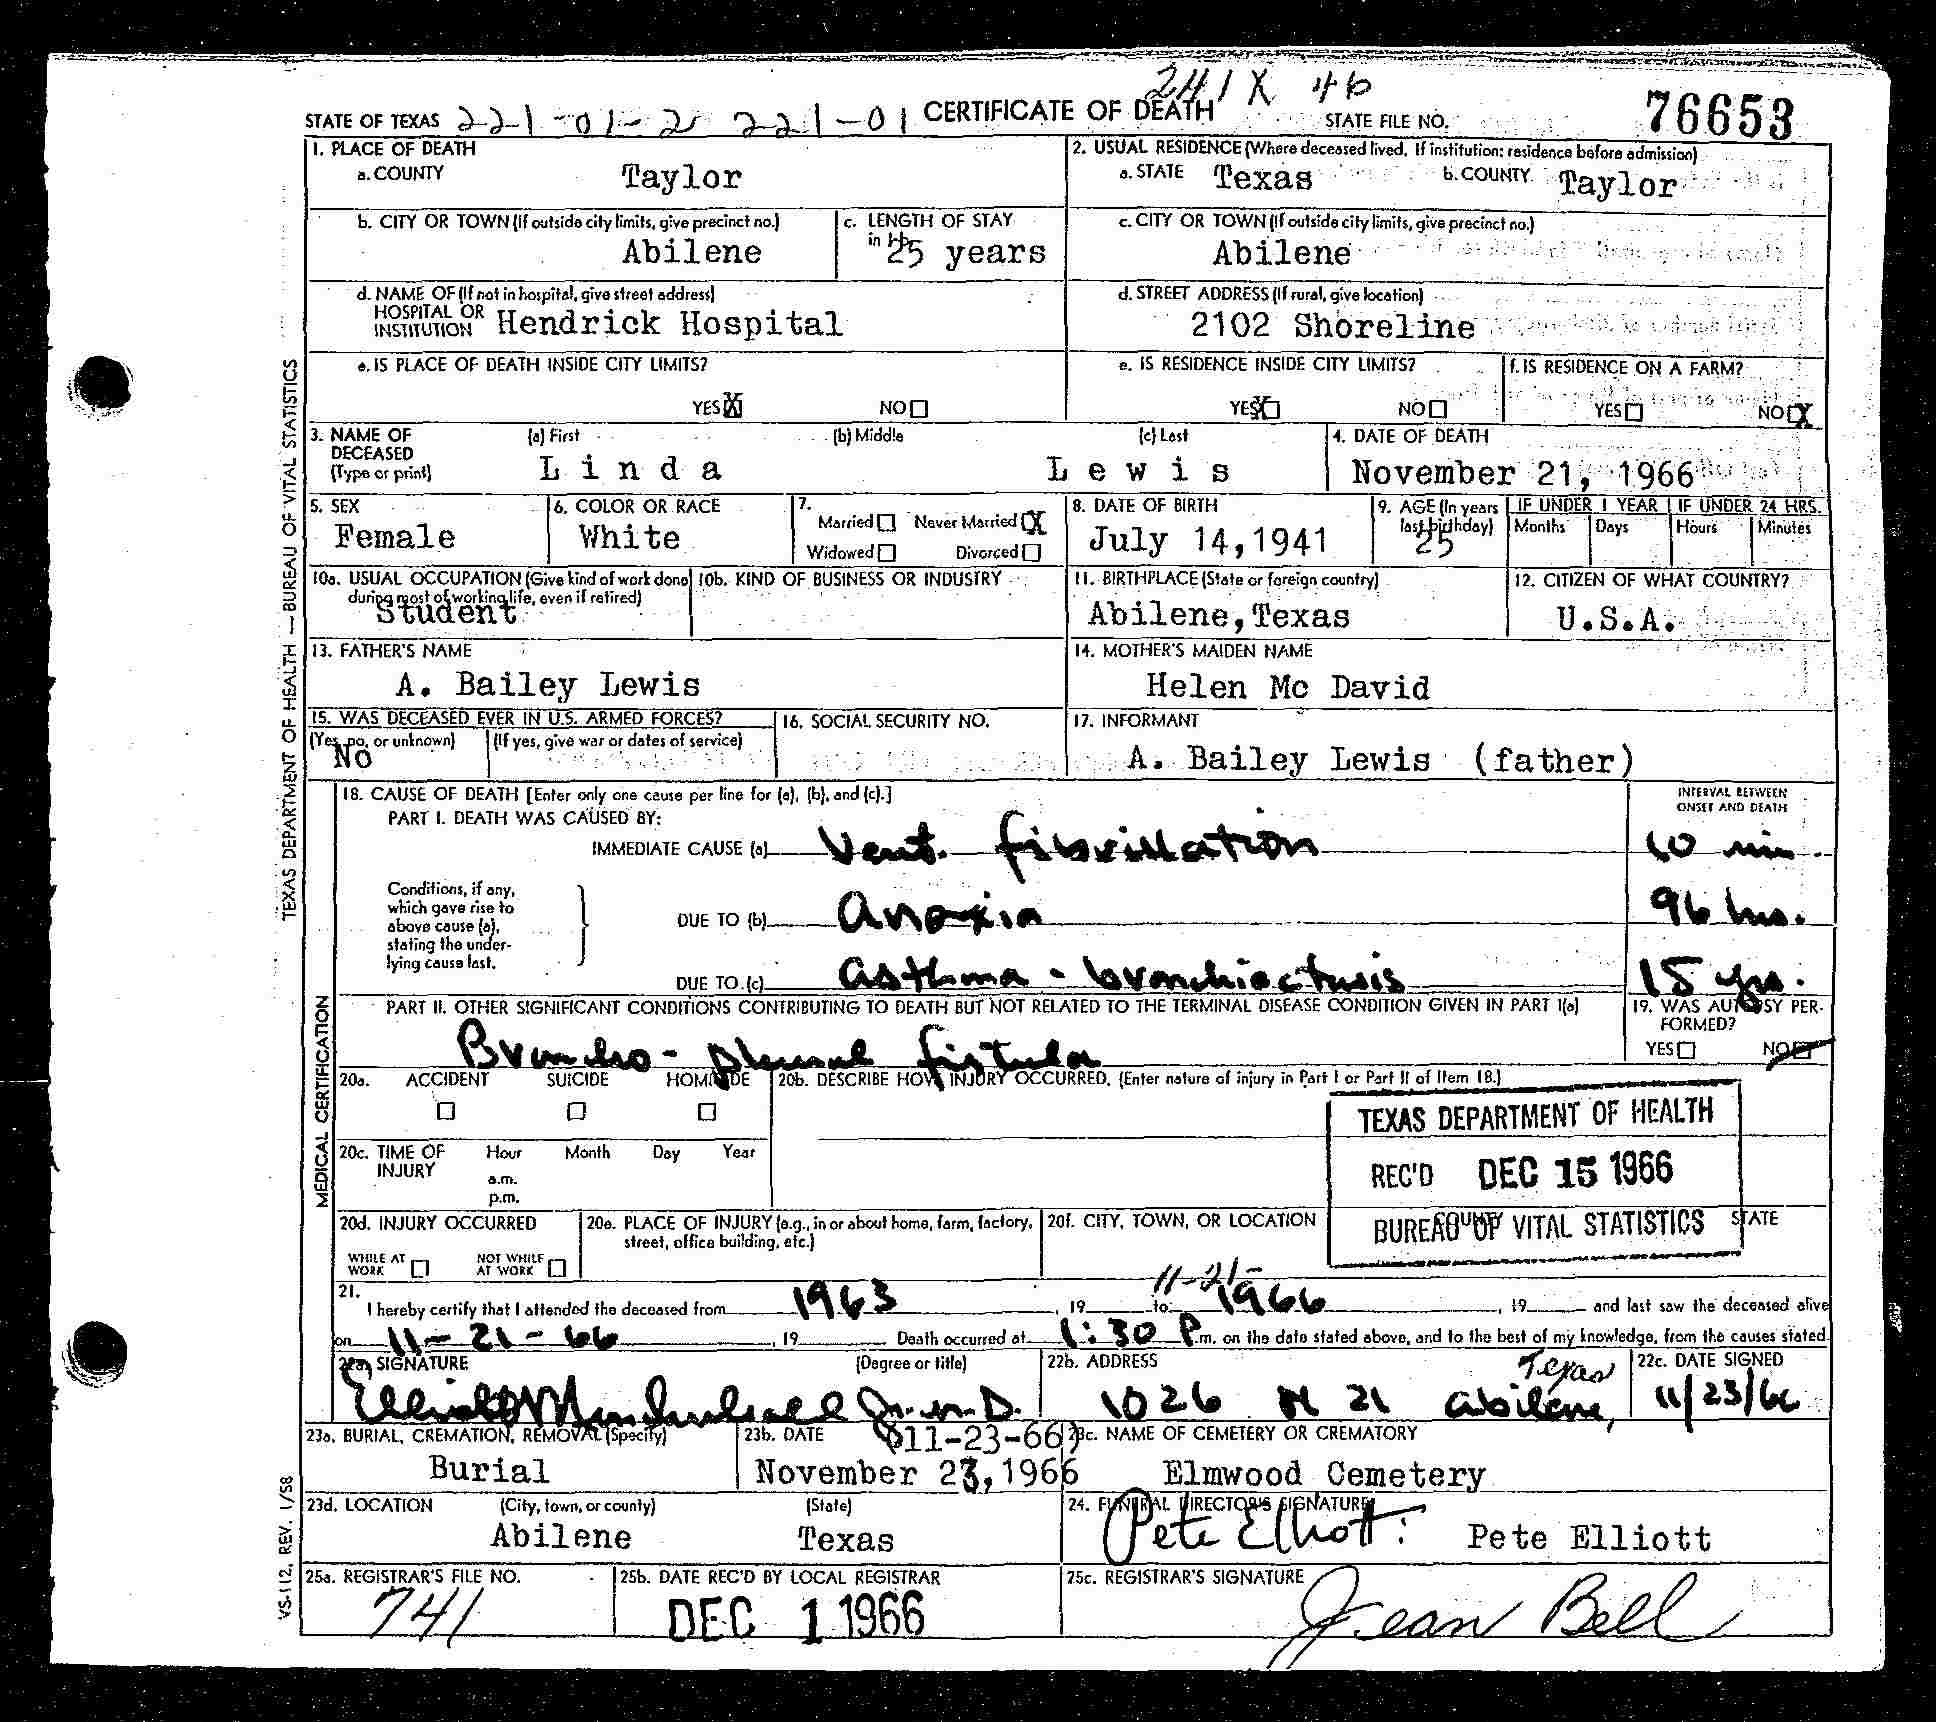 241X 46
STATE OF TEXAS 221-01-2 221-01 CERTIFICATE OF DEATH STATE FILE NO. 76653
1. PLACE OF DEATH
a. COUNTY Taylor
2. USUAL RESIDENCE (Where deceased lived. If institution: residence before admission)
a. STATE Texas b. COUNTY Taylor
b. CITY OR TOWN (If outside city limits, give precinct no.)
Abilene
c. LENGTH OF STAY
in 25 years
c. CITY OR TOWN (If outside city limits, give precinct no.)
Abilene
d. NAME OF (If not in hospital, give street address)
HOSPITAL OR
INSTITUTION Hendrick Hospital
d. STREET ADDRESS (If rural, give location)
2102 Shoreline
e. IS PLACE OF DEATH INSIDE CITY LIMITS?
YES X NO
e. IS RESIDENCE INSIDE CITY LIMITS?
YES X NO
f. IS RESIDENCE ON A FARM?
YES NO X
3. NAME OF DECEASED (Type or print)
(a) First (b) Middle (c) Last
Linda Lewis
4. DATE OF DEATH
November 21, 1966
5. SEX
Female
6. COLOR OR RACE
White
7.
Married Never Married X
Widowed Divorced
8. DATE OF BIRTH
July 14,1941
9. AGE (In years last birthday)
25
IF UNDER 1 YEAR IF UNDER 24 HRS.
Months Days Hours Minutes
10a. USUAL OCCUPATION (Give kind of work done
during most of working life, even if retired)
Student
10b. KIND OF BUSINESS OR INDUSTRY
11. BIRTHPLACE (State or foreign country)
Abilene,Texas
12. CITIZEN OF WHAT COUNTRY?
U.S.A.
13. FATHER'S NAME
A. Bailey Lewis
14. MOTHER'S MAIDEN NAME
Helen Mc David
15. WAS DECEASED EVER IN U.S. ARMED FORCES?
(Yes, no, or unknown) (If yes, give war or dates of service)
No
16. SOCIAL SECURITY NO.
17. INFORMANT
A. Bailey Lewis (father)
18. CAUSE OF DEATH [Enter only one cause per line for (a), (b), and (c).]
INTERVAL BETWEEN
ONSET AND DEATH
PART I. DEATH WAS CAUSED BY:
IMMEDIATE CAUSE (a) Vent. fibrillation 10 min
Conditions, if any,
which gave rise to
above cause (a),
stating the under-
lying cause last.
DUE TO (b) Anoxia 96 hrs.
DUE TO (c) Asthma - bronchiectasis 15 yrs.
PART II. OTHER SIGNIFICANT CONDITIONS CONTRIBUTING TO DEATH BUT NOT RELATED TO THE TERMINAL DISEASE CONDITION GIVEN IN PART I(a)
Broncho-pleural fistula
19. WAS AUTOPSY PER-
FORMED?
YES NO
20a. ACCIDENT SUICIDE HOMICIDE
20b. DESCRIBE HOW INJURY OCCURRED. (Enter nature of injury in Part I or Part II of Item 18.)
20c. TIME OF INJURY
Hour Month Day Year
a.m.
p.m.
TEXAS DEPARTMENT OF HEALTH
REC'D DEC 15 1966
BUREAU OF VITAL STATISTICS
20d. INJURY OCCURRED
WHILE AT WORK NOT WHILE AT WORK
20e. PLACE OF INJURY (e.g., in or about home, farm, factory,
street, office building, etc.)
20f. CITY, TOWN, OR LOCATION COUNTY STATE
21.
11-21-
I hereby certify that I attended the deceased from 1963, 19 to 1966, 19 and last saw the deceased alive
on 11-21-66, 19 Death occurred at 1:30 P.m. on the date stated above, and to the best of my knowledge, from the causes stated.
22a. SIGNATURE (Degree or title)
Elliott Mendenhall Jr. M.D.
22b. ADDRESS
1026 N 21 Abilene, Texas
22c. DATE SIGNED
11/23/66
23a. BURIAL, CREMATION, REMOVAL (Specify)
Burial
23b. DATE
(11-23-66)
November 23,1966
23c. NAME OF CEMETERY OR CREMATORY
Elmwood Cemetery
23d. LOCATION (City, town, or county) (State)
Abilene Texas
24. FUNERAL DIRECTOR'S SIGNATURE
Pete Elliott: Pete Elliott
25a. REGISTRAR'S FILE NO.
741
25b. DATE REC'D BY LOCAL REGISTRAR
DEC 1 1966
25c. REGISTRAR'S SIGNATURE
Jean Bell
TEXAS DEPARTMENT OF HEALTH — BUREAU OF VITAL STATISTICS
MEDICAL CERTIFICATION
VS-112, REV. 1/58